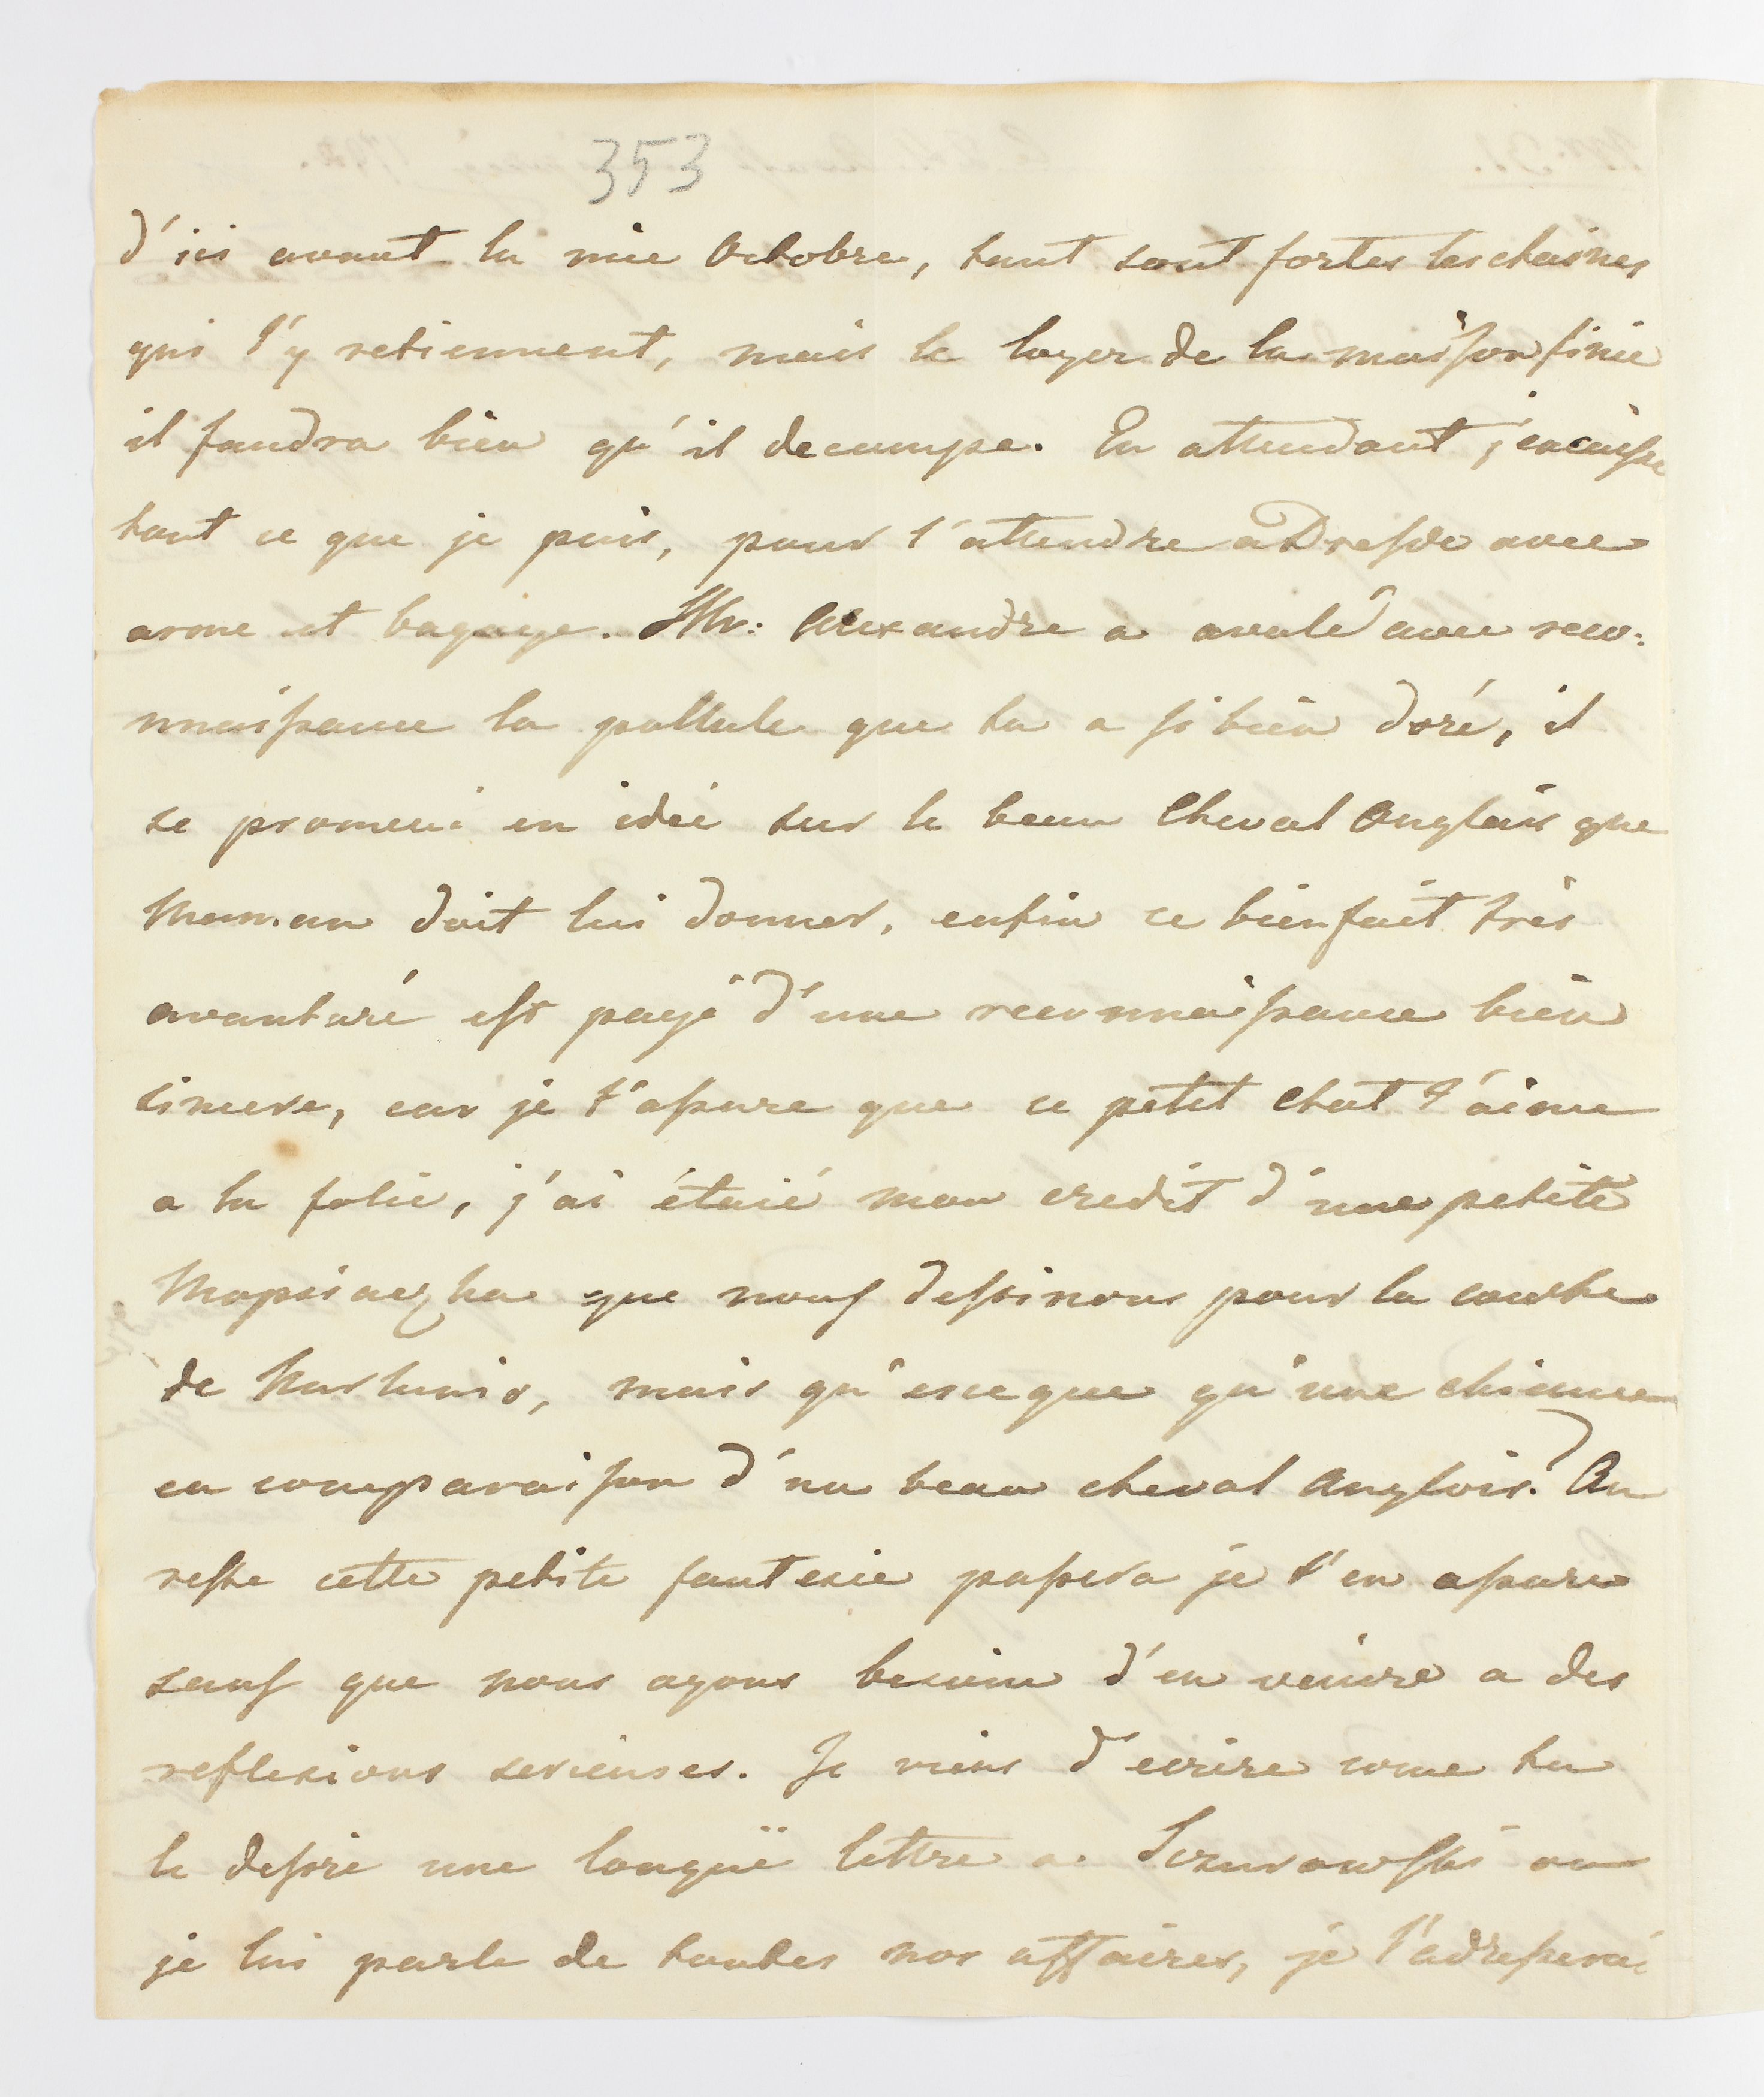 353
d'ici avant la mie Octobre, tant sont fortes les chaines
qui l'y retiennent, mais le loyer de la maison finie
il faudra bien qu'il decampe. En attendant j'encaisse
tout ce que je puis, pour l'attendre a Dresde avec
arme et bagage. Mr: Alexandre a avalé avec reco:
nnaissance la pullule que tu a si bien doré, il
se promene en idée sur le beau Cheval Anglais que
Maman doit lui donner, enfin ce bienfait très
avanturé est payé d'une reconnaissance bien
sincere, car je t'assure que ce petit Chat t'aime
a la folie, j'ai étaié mon credit d'une petite
que nous dessinons pour la couche
de mais qu'esceque qu'une chienne
en comparaison d'un beau cheval Anglois? Au
reste cette petite fantesie passera je t'en assure
sauf que nous ayons besoin d'en venire a des
reflexions serieuses. Je viens d'ecrire come tu
le desire une longuë lettre a ou
je lui parle de toutes nos affaires, je l'adresserai